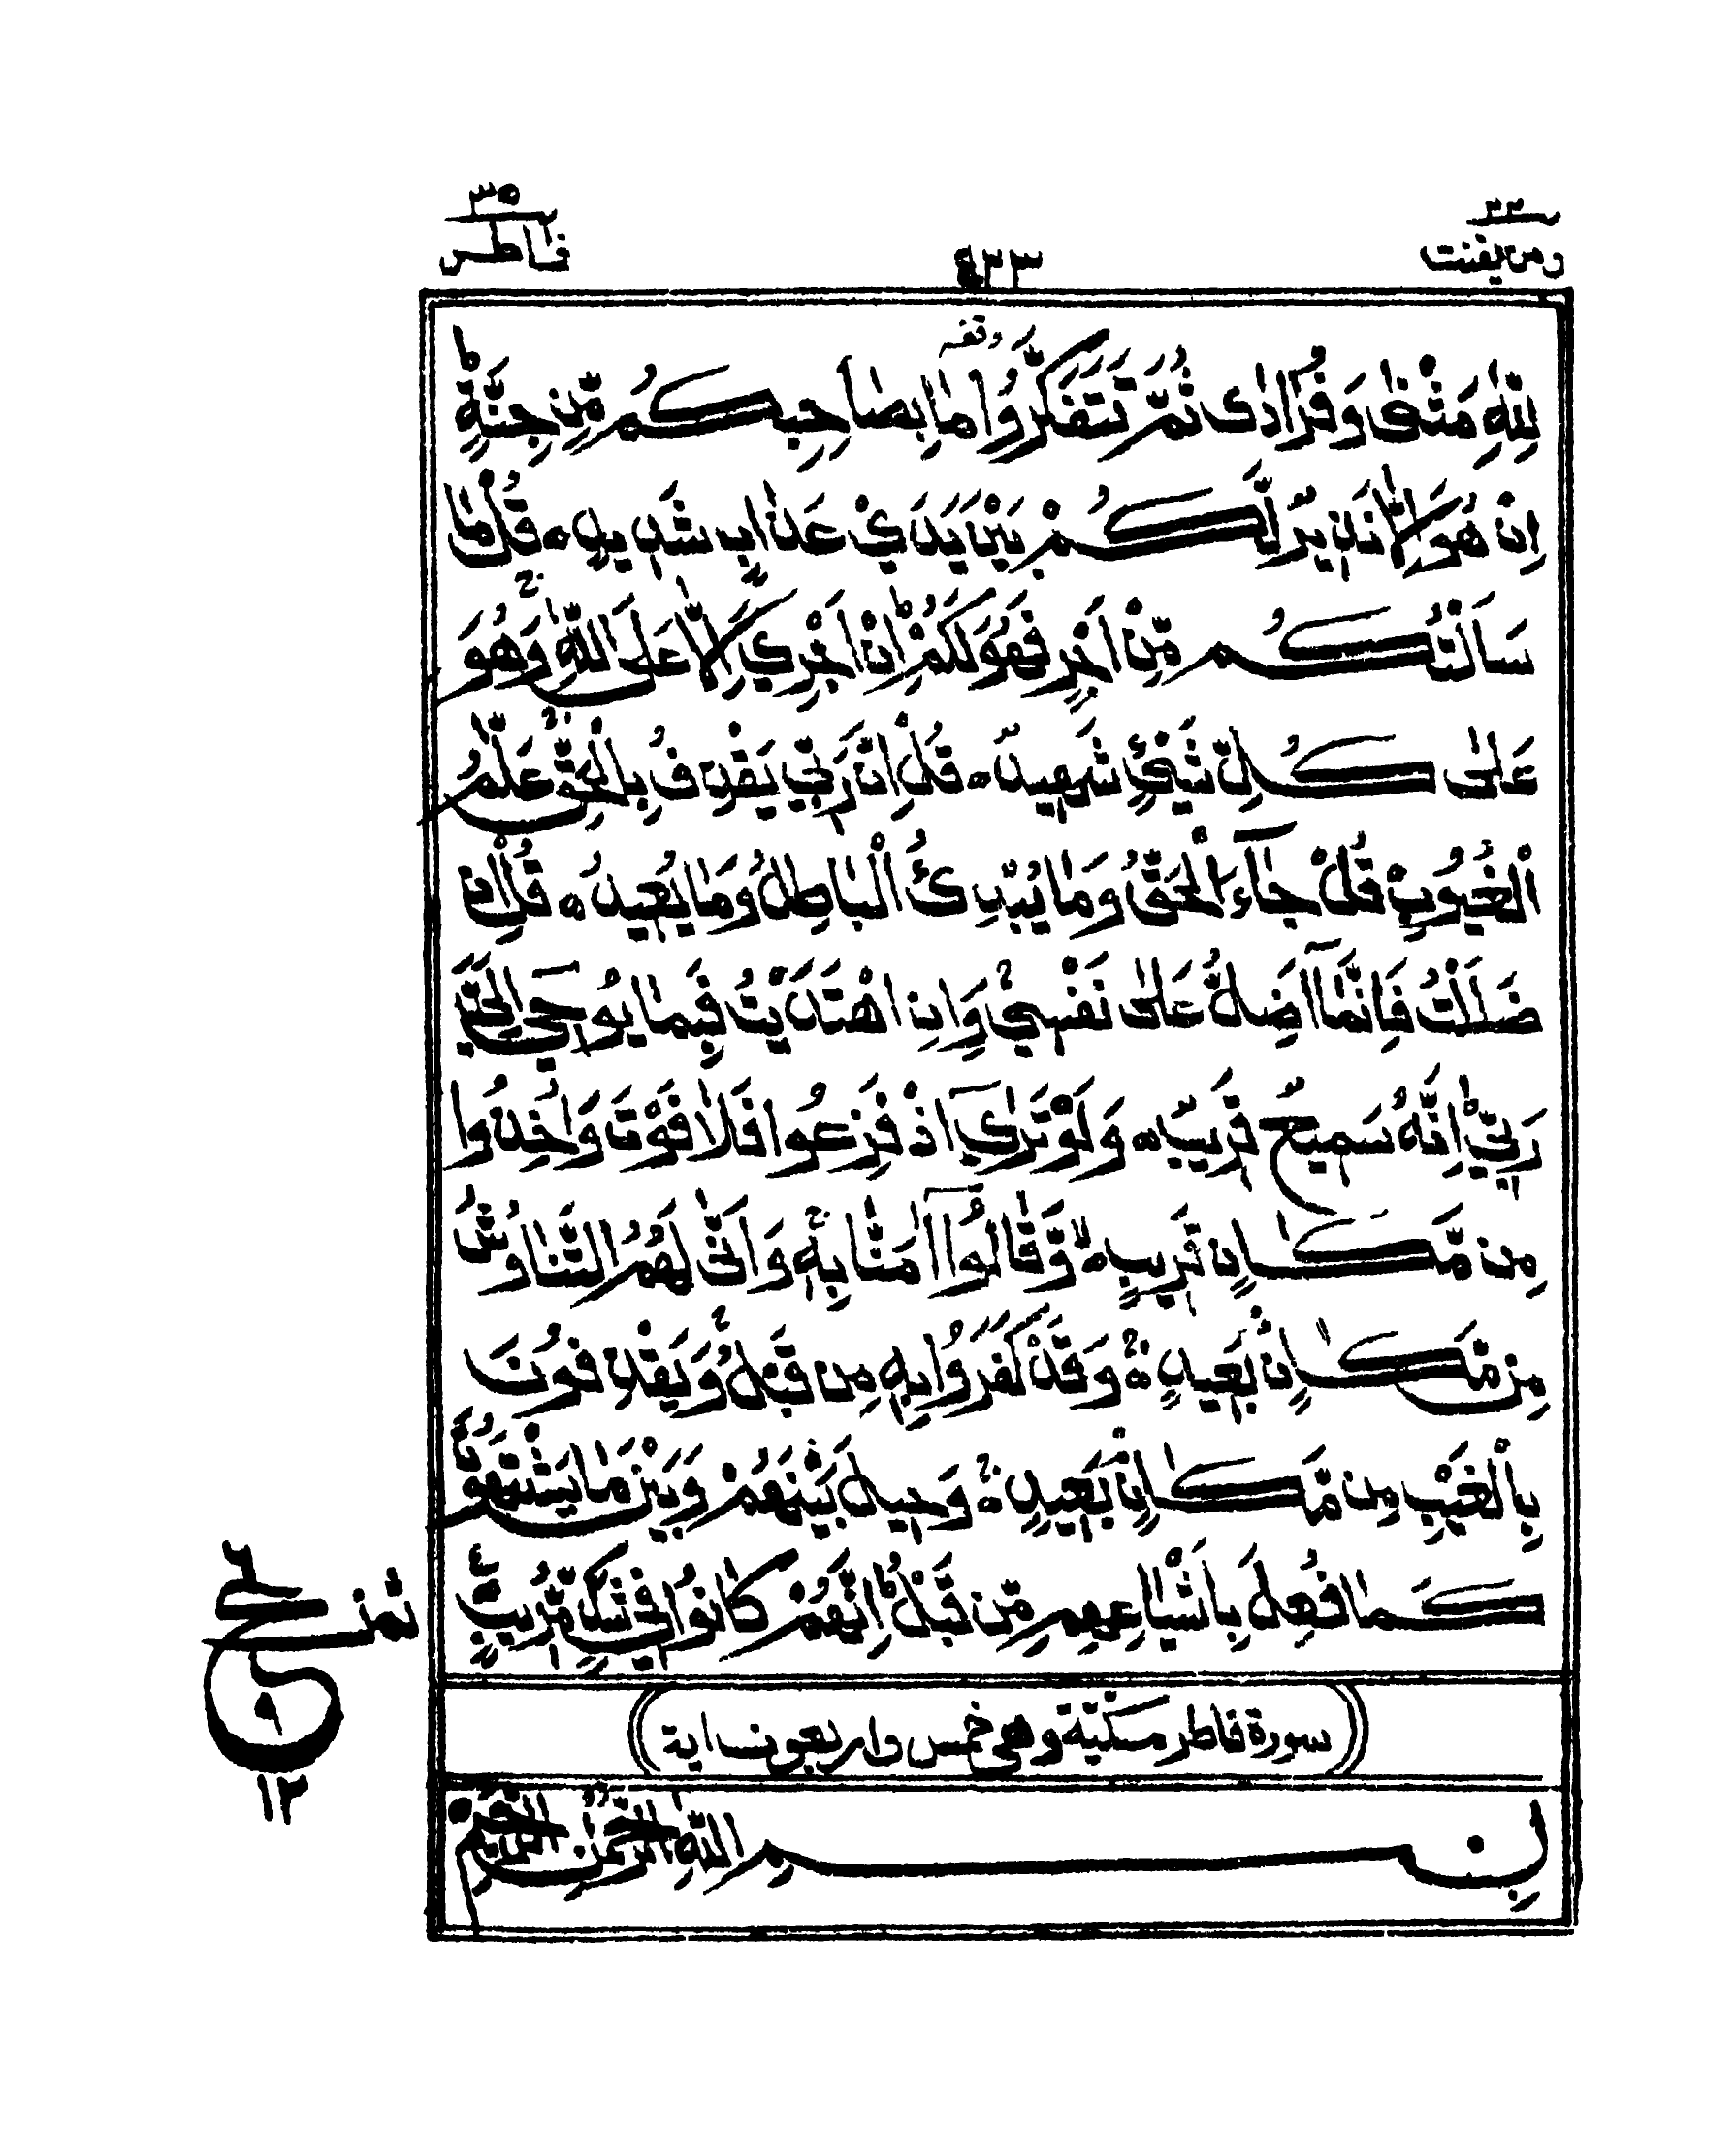 ومن يقنت ٢٢
٤٣٣
فاطر ٣٥
وقفه
لِلّٰهِ مَثْنٰى وَفُرَادٰى ثُمَّ تَتَفَكَّرُوْا مَا بِصَاحِبِكُمْ مِّنْ جِنَّةٍ ؕ
اِنْ هُوَ اِلَّا نَذِيْرٌ لَّكُمْ بَيْنَ يَدَيْ عَذَابٍ شَدِيْدٍ ہ قُلْ مَا
سَاَلْتُكُمْ مِّنْ اَجْرٍ فَهُوَ لَكُمْ ؕ اِنْ اَجْرِيَ اِلَّا عَلَى اللّٰهِ ۚ وَهُوَ
عَلٰى كُلِّ شَيْءٍ شَهِيْدٌ ہ قُلْ اِنَّ رَبِّيْ يَقْذِفُ بِالْحَقِّ ۚ عَلَّامُ
الْغُيُوْبِ قُلْ جَآءَ الْحَقُّ وَمَا يُبْدِئُ الْبَاطِلُ وَمَا يُعِيْدُ ہ قُلْ اِنْ
ضَلَلْتُ فَاِنَّمَآ اَضِلُّ عَلٰى نَفْسِيْ ۚ وَاِنِ اهْتَدَيْتُ فَبِمَا يُوْحِيْٓ اِلَيَّ
رَبِّيْ ؕ اِنَّهٗ سَمِيْعٌ قَرِيْبٌ ہ وَلَوْ تَرٰىٓ اِذْ فَزِعُوْا فَلَا فَوْتَ وَاُخِذُوْا
مِنْ مَّكَانٍ قَرِيْبٍ ہۙ وَّقَالُوْٓا اٰمَنَّا بِهٖ ۚ وَاَنّٰى لَهُمُ التَّنَاوُشُ
مِنْ مَّكَانٍ بَعِيْدٍ ہۚ وَقَدْ كَفَرُوْا بِهٖ مِنْ قَبْلُ ۚ وَيَقْذِفُوْنَ
بِالْغَيْبِ مِنْ مَّكَانٍ بَعِيْدٍ ہۚ وَحِيْلَ بَيْنَهُمْ وَبَيْنَ مَا يَشْتَهُوْنَ
كَمَا فُعِلَ بِاَشْيَاعِهِمْ مِّنْ قَبْلُ ؕ اِنَّهُمْ كَانُوْا فِيْ شَكٍّ مُّرِيْبٍ
ثمن
ع
٦
٩
١٢
سورة فاطر مكيّة وهى خمس واربعون اية
بِسْمِ اللّٰهِ الرَّحْمٰنِ الرَّحِيْمِ